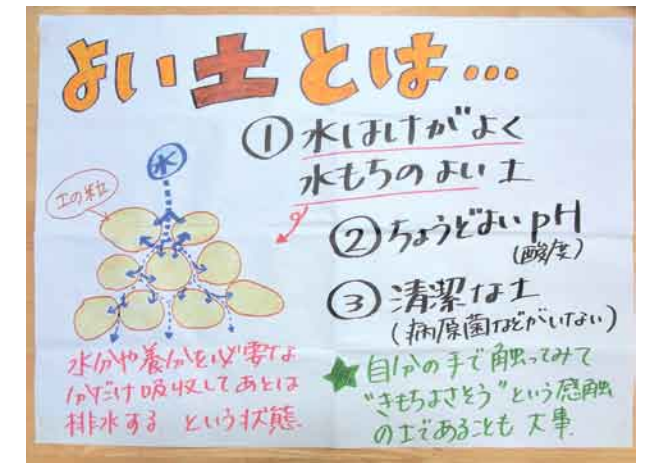 よい土とは...
①水はけがよく
水もちのよい土
水
土の粒
②ちょうどよいpH
(酸度)
③清潔な土
(病原菌などがいない)
水分や養分を必要な
分だけ吸収してあとは
排水する という状態.
★自分の手で触ってみて
"きもちよさそう"という感触
の土であることも大事.